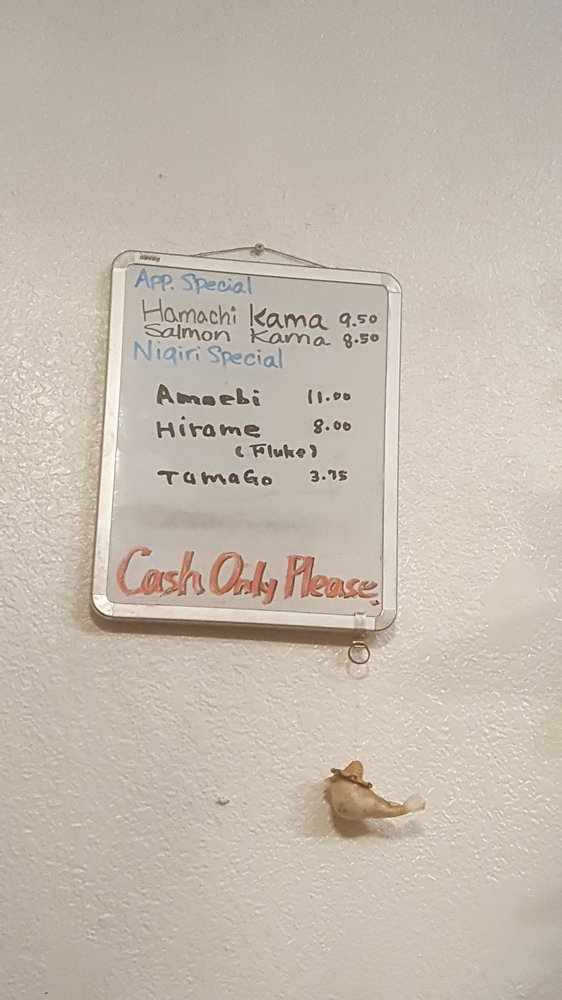 App. Special
Hamachi Kama 9.50
Salmon Kama 8.50
Nigiri Special
Amaebi 11.00
Hirame 8.00
(Fluke)
TamaGo 3.75
Cash Only Please.